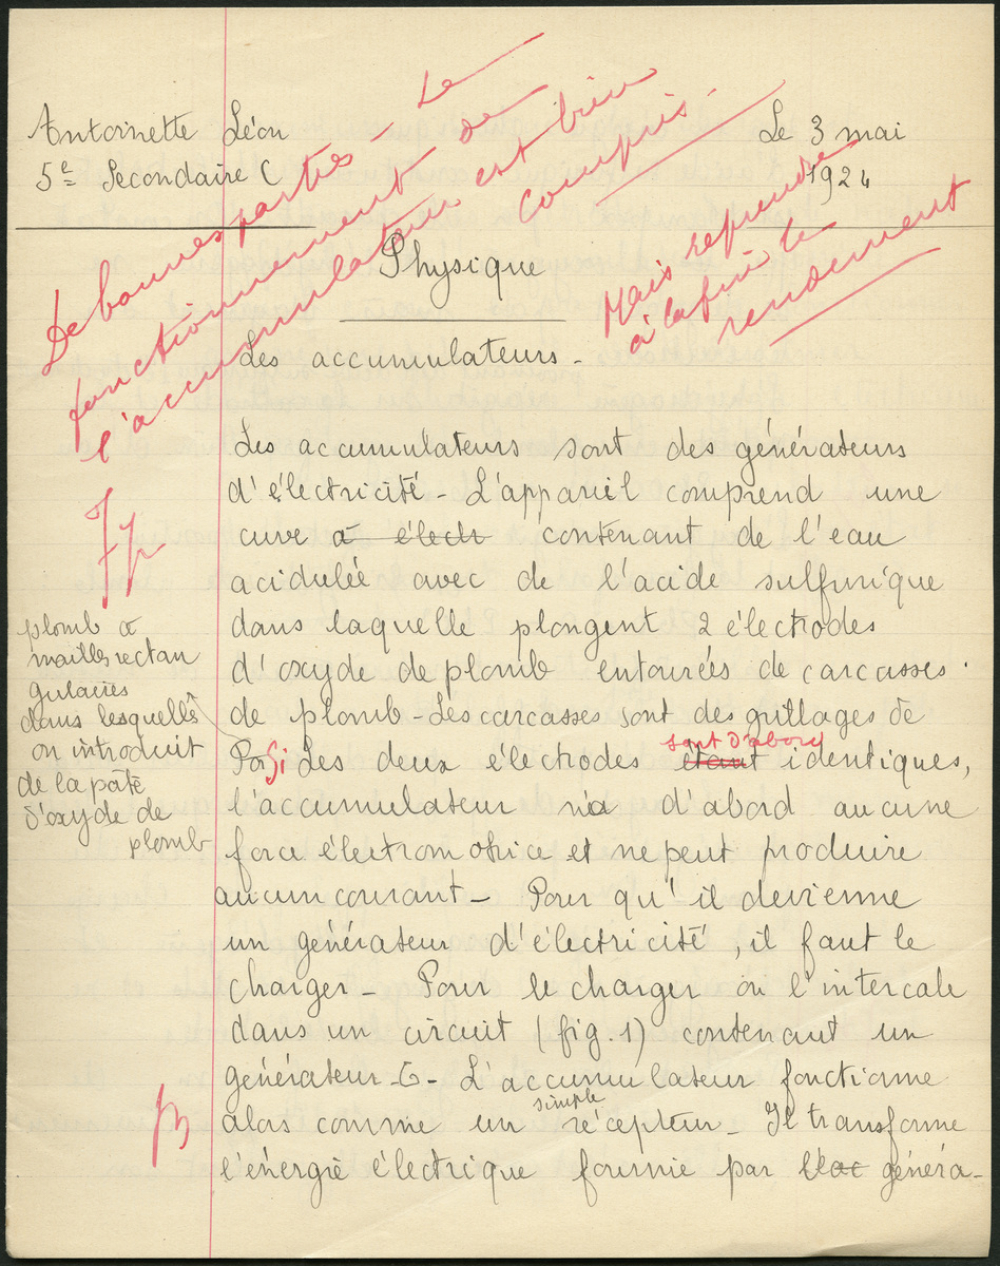 Antoinette Léon
5e Secondaire C
Le 3 mai
1924
De bonnes parties - Le
fonctionnement de
l'accumulateur est bien
compris.
Mais reprendre
à la fin le
rendement
Physique
Les accumulateurs -
Les accumulateurs sont des générateurs
d'électricité - L'appareil comprend une
cuve à électr contenant de l'eau
acidulée avec de l'acide sulfurique
dans laquelle plongent 2 électrodes
d'oxyde de plomb entourées de carcasses
de plomb - Les carcasses sont des grillages de
plomb à
mailles rectan
gulaires
dans lesquelles
on introduit
de la pâte
d'oxyde de
plomb
sont d'abord
Si Les deux électrodes étant identiques,
l'accumulateur n'a d'abord aucune
force électromotrice et ne peut produire
aucun courant - Pour qu'il devienne
un générateur d'électricité, il faut le
charger - Pour le charger on l'intercale
dans un circuit (fig. 1) contenant un
générateur G - L'accumulateur fonctionne
simple
alors comme un récepteur - Il transforme
l'énergie électrique fournie par généra-